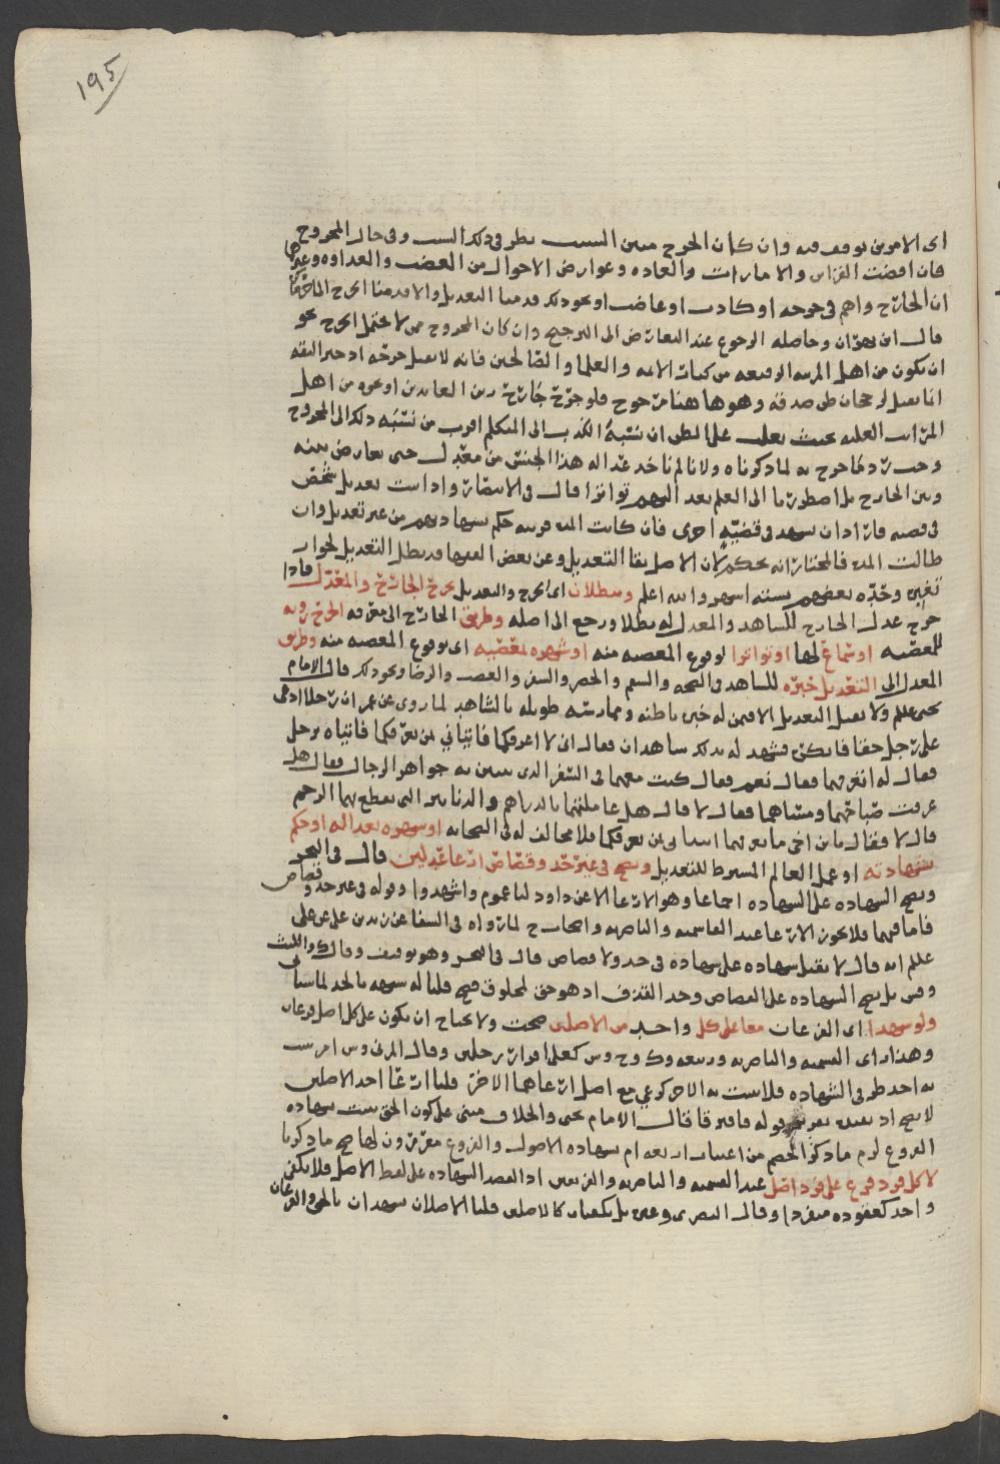 195
اى الامرين توقف فيه وان كان الجرح مبين السبب نظر فى ذلك السبب وفى حال المجروح
فان اقتضت القرائن والامارات والعاده وعوارض الاحوال من الغضب والعداوه وغيرها
ان الجارح واهم فى جرحه او كاذب او غاضب او نحو ذلك قدمنا التعديل والا قدمنا الجرح
قال ابن بهران وحاصله الرجوع عند التعارض الى الترجيح وان كان المجروح ممن لا يحتمل الجرح نحو
ان يكون من اهل المرتبه الرفيعه من كبار الايمه والعلما والصالحين فانه لا يقبل جرحه اذ خبر الثقه
انما يقبل لرجحان ظن صدقه وهو هاهنا مرجوح فلو جرح جارح زين العابدين او نحوه من اهل
المراتب العليه بحيث يغلب على الظن ان نسبة الكذب الى المتكلم اقرب من نسبته ذلك الى المجروح
وجب رد ما جرح به لما ذكرناه ولانا لم ناخذ عداله هذا الجنس من معدل حتى يعارض بينه
وبين الجارح بل اضطررنا الى العلم بعد التهم تواترا قال فى الانتصار واذا ثبت تعديل شخص
فى قضيه فاراد ان يشهد فى قضيّه اخرى فان كانت المده قريبه حكم بشهادتهم من غير تعديل وان
طالت المده فالمختار انه يحكم لان الاصل بقا التعديل وعن بعض الفقها قد بطل التعديل لجواز
تغير وحدّه بعضهم بسته اشهر والله اعلم ويبطلان اى الجرح والتعديل بجرح الجارح والمعدّل فاذا
جرح عدل الجارح للشاهد والمعدل له بطلا ورجع الى اصله وطريق الجارح الى معرفه الجرح رويه
للمعصيه او سماع لها او تواترا لوقوع المعصيه منه او شهره لمعصيه اى بوقوع المعصيه منه وطريق
المعدل الى التعديل خبره للشاهد فى الصحه والسقم والحضر والسفر والغضب والرضا ونحو ذلك قال الامام
يحيى علم ولا يقبل التعديل الا فيمن له خبره باطنه وممارسه طويله بالشاهد لما روى عن عمر ان رجلا ادعى
على رجل حقا فانكره فشهد له بذلك شاهدان فقال انى لا اعرفكما فاتيانى بمن يعرفكما فاتياه برجل
فقال له اتعرفهما فقال نعم فقال كنت معهما فى السفر الذى يتبين به جواهر الرجال فقال هل
عرفت صباحهما ومسآهما فقال لا قال هل عاملتهما بالدراهم والدنانير التى يقطع بها الرحم
قال لا فقال يا بن اخى ما تعرفهما ايتيانى بمن يعرفكما فلا مخالف له فى الصحابه او شهره بعداله او حكم
بشهادته او عمل العالم المشترط للتعديل ويصح فى غير حد وقصاص ارعا عدلين قال فى البحر
وتصح الشهاده على الشهاده اجماعا وهو الارعا الا عن داود لنا عموم واشهدوا وقوله فى غير حد وقصاص
فاما فيهما فلا يجوز الارعا عند القاسميه والناصريه واصحاب ح لما رواه فى الشفا عن زيد بن على عن على
علم انه قال لا تقبل شهاده على شهاده فى حد ولا قصاص قال فى البحر وهو توقيف وقال ك والليث
وقش بل تصح الشهاده على القصاص وحد القذف اذ هو حق لمخلوق فصح قلنا له شبهه بالحد لما سياتى
ولو شهدا اى الفرعان معا على كل واحد من الاصلين صحت ولا يحتاج ان يكون على كل اصل فرعان
وهذا راى القسميه والناصريه وربيعه وك وح وش كعلى اقرار رجلين وقال المزنى وش
به احد طرفى الشهاده فلا يثبت به الاخر كمرعى مع اصل ارعاهما الاخر قلنا ارعا احد الاصلين
لا يصح اذ يعيد تقرير قوله فافترقا قال الامام يحيى والخلاف مبنى على كون الحق يثبت بشهاده
الفروع لزم ما ذكره الخصم من اعتبار اربعه ام بشهاده الاصول والفروع مقررون لها صح ما ذكرنا
لا كل فرد فرع على فرد اصل عند القسميه والناصريه والفريقين اذ القصد الشهاده على لفظ الاصل فلا يكفى
واحد كعقوده منفردا وقال البصرى وغيره بل يكفيان كالاصلين قلنا الاصلان شهدان بالحق والفرعان